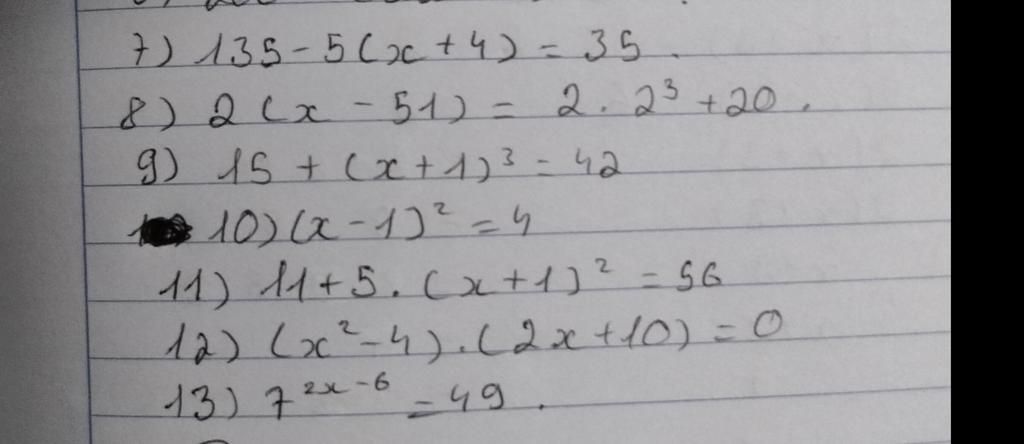 7) 135 - 5(x + 4) = 35.
8) 2(x - 51) = 2 . 2³ + 20.
9) 15 + (x + 1)³ = 42
10) (x - 1)² = 4
11) 11 + 5 . (x + 1)² = 56
12) (x² - 4) . (2x + 10) = 0
13) 7²ˣ⁻⁶ = 49.